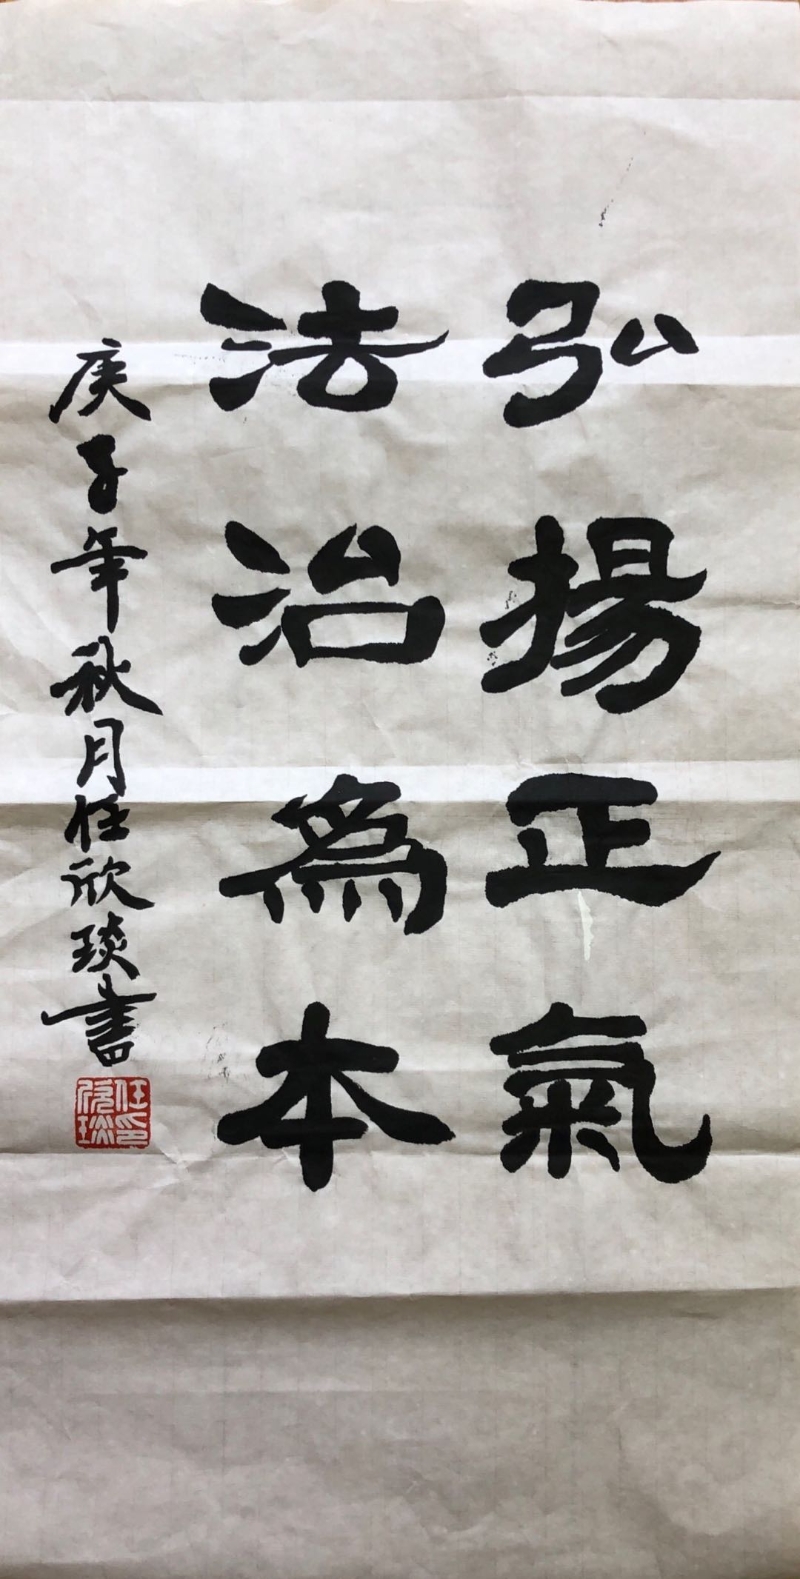 弘揚正氣
法治為本
庚子年秋月任欣琰書
任欣琰印